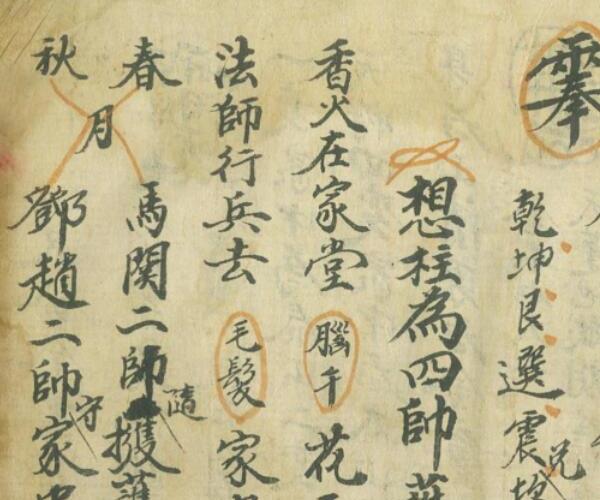 奉
乾坤艮選震坎兑
想柱為四帥
香火在家堂 腦千 花
法師行兵去 毛髮 家
春 馬関二帥 隨 擭護
秋 月 鄧趙二帥 守 家